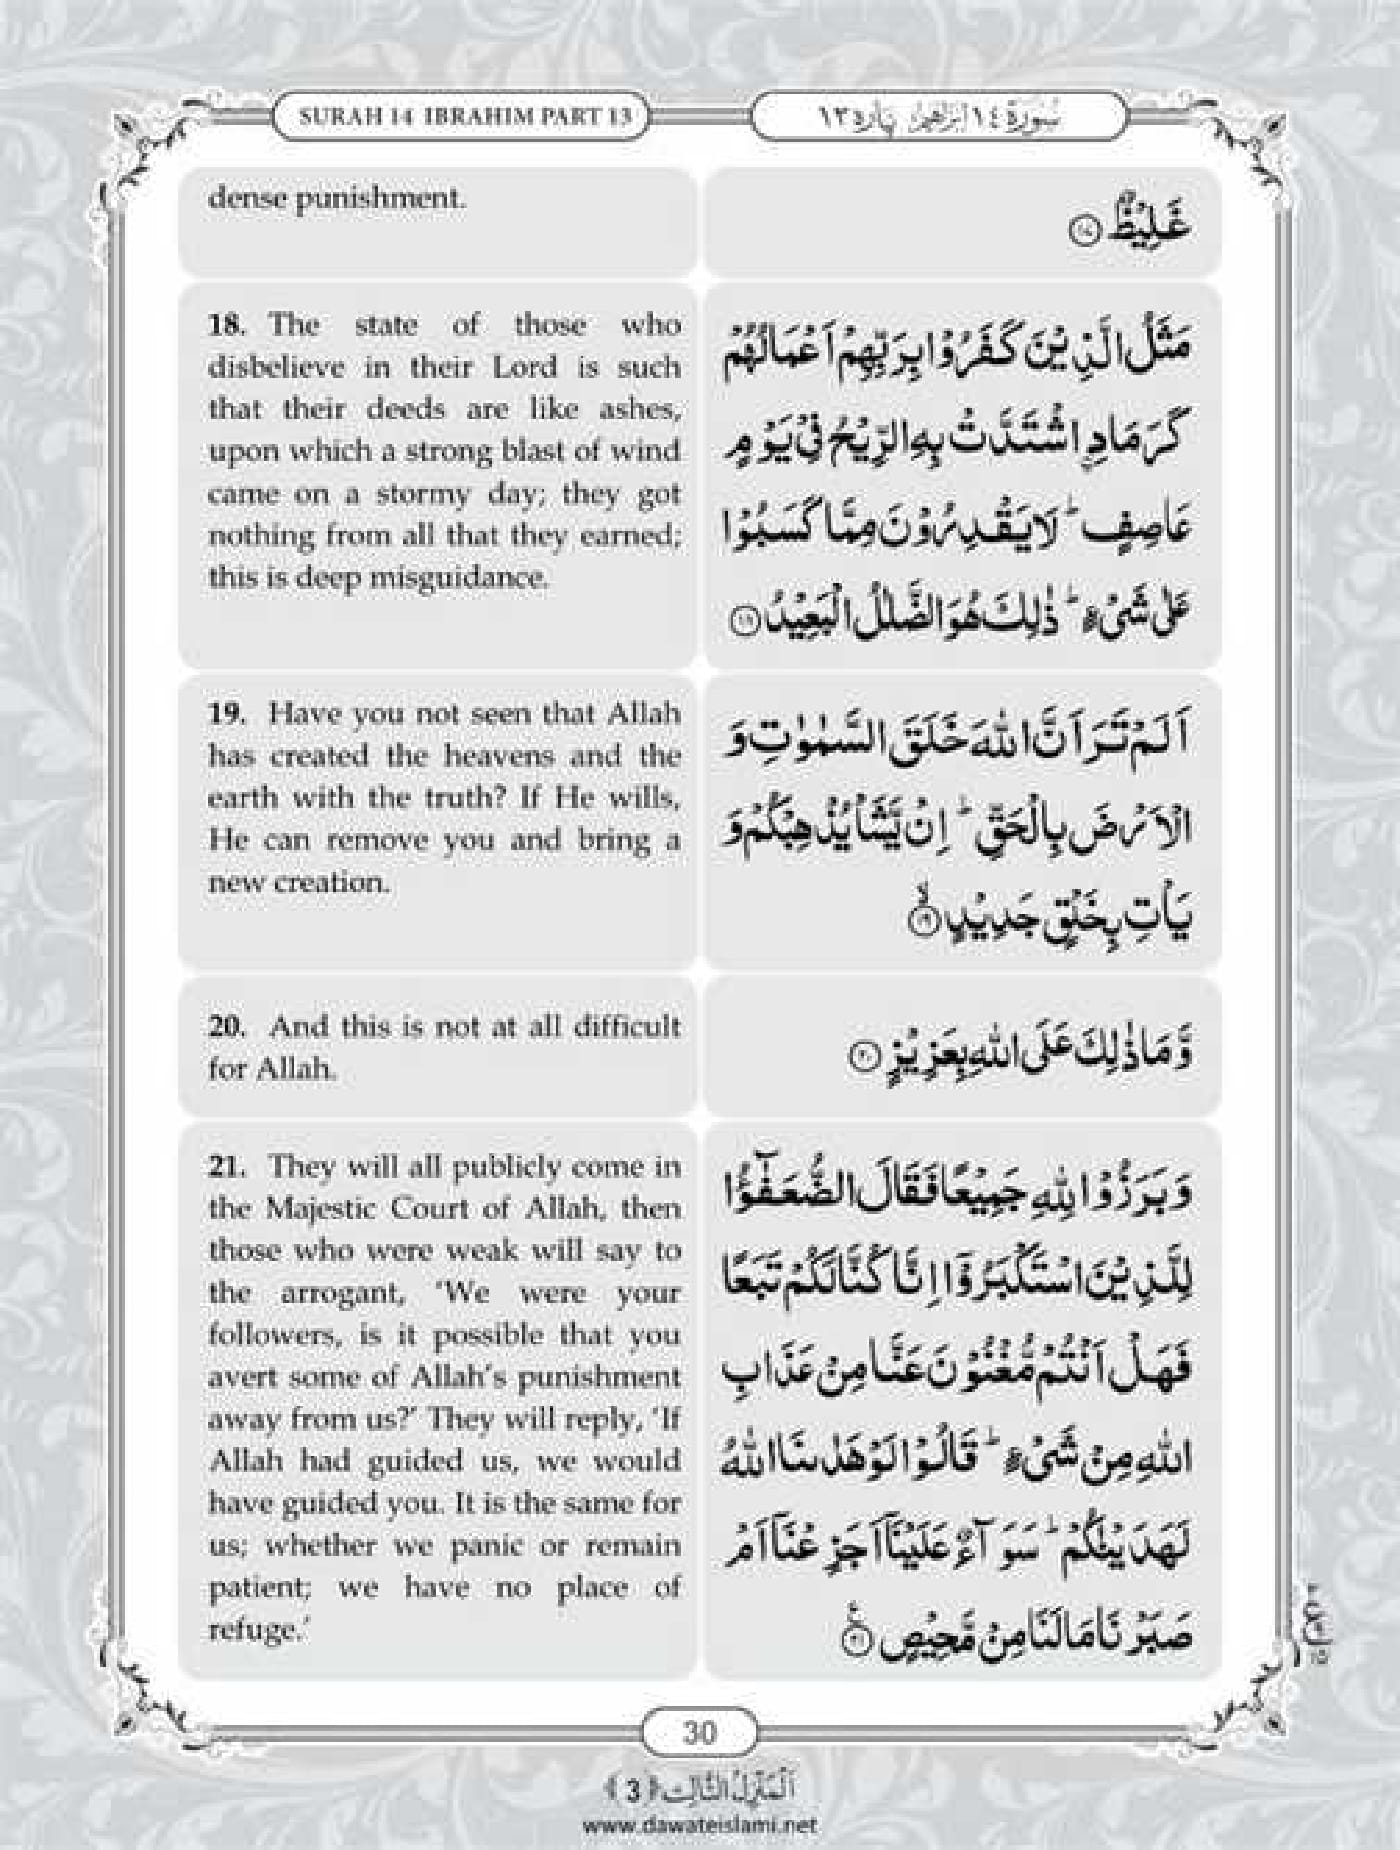 SURAH 14 IBRAHIM PART 13
سُوْرَة ١٤ اِبْرٰهِيْم پاره ١٣
dense punishment.
غَلِيْظٌ ﴿۱۷﴾
18. The state of those who
disbelieve in their Lord is such
that their deeds are like ashes,
upon which a strong blast of wind
came on a stormy day; they got
nothing from all that they earned;
this is deep misguidance.
مَثَلُ الَّذِيْنَ كَفَرُوْا بِرَبِّهِمْ اَعْمَالُهُمْ
كَرَمَادِ ۣاشْتَدَّتْ بِهِ الرِّيْحُ فِيْ يَوْمٍ
عَاصِفٍ ؕ لَا يَقْدِرُوْنَ مِمَّا كَسَبُوْا
عَلٰى شَيْءٍ ؕ ذٰلِكَ هُوَ الضَّلٰلُ الْبَعِيْدُ ﴿۱۸﴾
19. Have you not seen that Allah
has created the heavens and the
earth with the truth? If He wills,
He can remove you and bring a
new creation.
اَلَمْ تَرَ اَنَّ اللّٰهَ خَلَقَ السَّمٰوٰتِ وَ
الْاَرْضَ بِالْحَقِّ ؕ اِنْ يَّشَاْ يُذْهِبْكُمْ وَ
يَاْتِ بِخَلْقٍ جَدِيْدٍ ﴿ۙ۱۹﴾
20. And this is not at all difficult
for Allah.
وَّمَا ذٰلِكَ عَلَى اللّٰهِ بِعَزِيْزٍ ﴿۲۰﴾
21. They will all publicly come in
the Majestic Court of Allah, then
those who were weak will say to
the arrogant, ‘We were your
followers, is it possible that you
avert some of Allah’s punishment
away from us?’ They will reply, ‘If
Allah had guided us, we would
have guided you. It is the same for
us; whether we panic or remain
patient; we have no place of
refuge.’
وَبَرَزُوْا لِلّٰهِ جَمِيْعًا فَقَالَ الضُّعَفٰٓؤُا
لِلَّذِيْنَ اسْتَكْبَرُوْۤا اِنَّا كُنَّا لَكُمْ تَبَعًا
فَهَلْ اَنْتُمْ مُّغْنُوْنَ عَنَّا مِنْ عَذَابِ
اللّٰهِ مِنْ شَيْءٍ ؕ قَالُوْا لَوْ هَدٰىنَا اللّٰهُ
لَهَدَيْنٰكُمْ ؕ سَوَآءٌ عَلَيْنَاۤ اَجَزِعْنَاۤ اَمْ
صَبَرْنَا مَا لَنَا مِنْ مَّحِيْصٍ ﴿٪۲۱﴾
30
اَلْمَنْزِلُ الثَّالِث ﴿3﴾
www.dawateislami.net